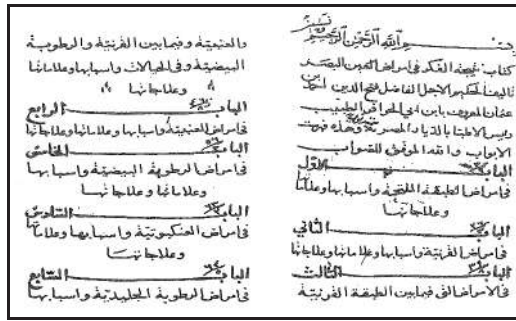 بسم الله الرحمن الرحيم
كتاب نتيجة الفكر في امراض العين البصر
تاليف الحكيم الاجل الفاضل فتح الدين احمد بن
عثمان المعروف بابن ابي الحوافر الطبيب
رييس الاطبا بالديار المصرية وهذه فهرست
الابواب والله الموفق للصواب
الباب الاول
في امراض الطبقة الملتحمة واسبابها وعلاماتها
وعلاجاتها
الباب الثاني
في امراض القرنية واسبابها وعلاماتها وعلاجاتها
الباب الثالث
في الامراض التي فيما بين الطبقة القرنية
والعنبية وفيما بين القرنية والرطوبة
البيضية وفي الخيالات واسبابها وعلاماتها
وعلاجاتها
الباب الرابع
في امراض العنبية واسبابها وعلاماتها وعلاجاتها
الباب الخامس
في امراض الرطوبة البيضية واسبابها
وعلاماتها وعلاجاتها
الباب السادس
في امراض العنكبوتية واسبابها وعلاماتها
وعلاجاتها
الباب السابع
في امراض الرطوبة الجليدية واسبابها